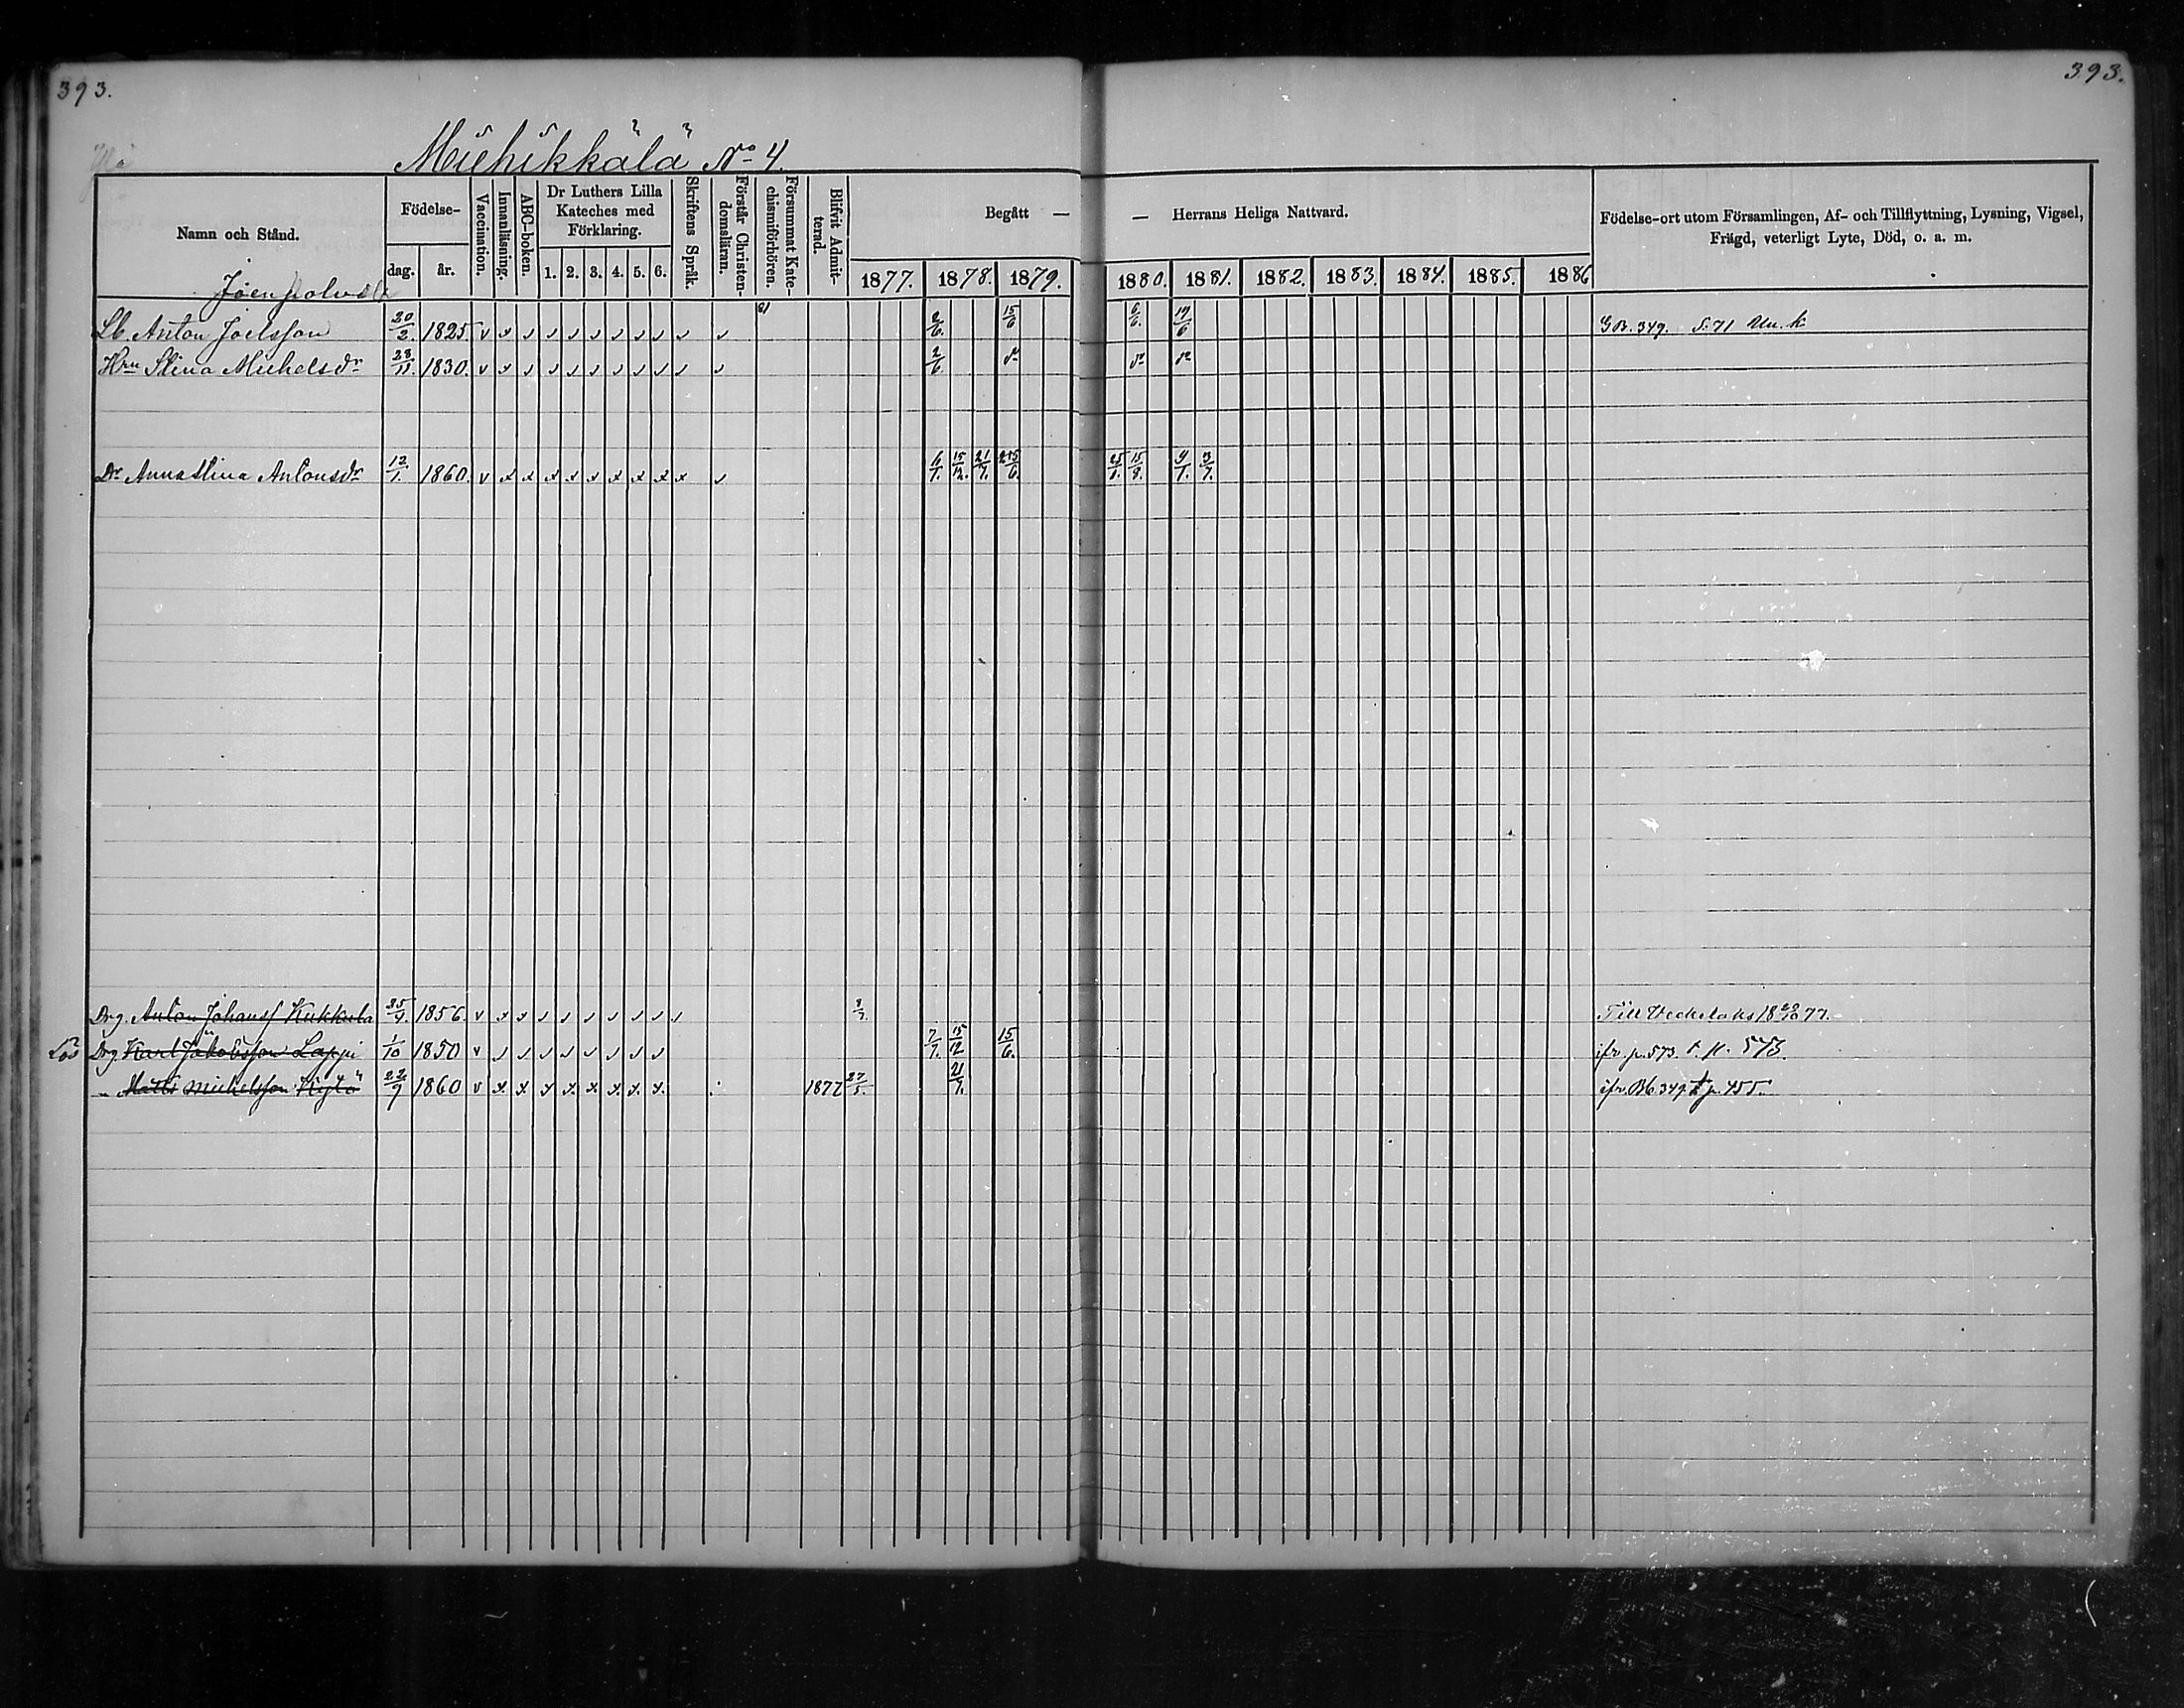 393.
393.
Miehikkälä No 4.
Namn och Stånd.
Födelse-
dag.
år.
Vaccination.
Innanläsning.
ABC-boken.
Dr Luthers Lilla Kateches med Förklaring.
1. 2. 3. 4. 5. 6.
Skriftens Språk.
Förstår Christen-domsläran.
Försummat Kate-chismiförhören.
Blifvit Admit-terad.
Begått — — Herrans Heliga Nattvard.
1877. 1878. 1879. 1880. 1881. 1882. 1883. 1884. 1885. 1886
Födelse-ort utom Församlingen, Af- och Tillflyttning, Lysning, Vigsel, Frägd, veterligt Lyte, Död, o. a. m.
Lb. Anton Joelsson 20/2. 1825. v x 2/6. 15/6 6/6. 19/6 GB. 349. S. 71 Un. k.
Hru Stina Michelsdr 23/11. 1830. v x 2/6 do do do
Dr Annastina Antonsdr 12/1. 1860. v x x x x x x x x x 6/1. 15/12. 21/7. 15/6. 25/1. 15/8. 9/1. 3/7.
Drg. Anton Johanss Kukkula 25/9. 1856. v x x Till Veckelaks 18 77.
Drg. Karl Jakobsson Lappi 1/10 1850 v 7/7. 15/12 15/6. ifr. p. 573. t. p. 573.
" Matts Michelsson Kylä 22/9 1860 v x x x x x x x x. 1877 27/5. 21/7. ifr. Bb. 349. t p. 155.